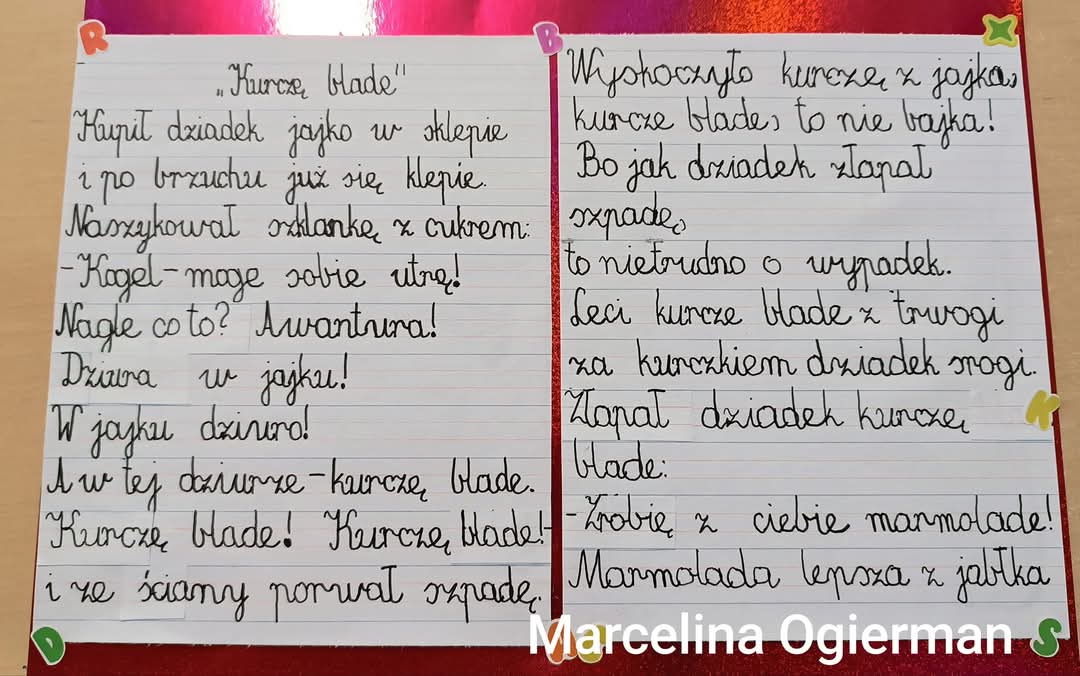 R
B
„Kurczę blade"
Kupił dziadek jajko w sklepie
i po brzuchu już się klepie.
Naszykował szklankę z cukrem:
-Kogel-moge sobie utrę!
Nagle co to? Awantura!
Dziura w jajku!
W jajku dziuro!
A w tej dziurze-kurczę blade.
Kurczę blade! Kurczę blade!-
i ze ściany porwał szpadę.
D
Wyskoczyło kurczę z jajka,
kurcze blade, to nie bajka!
Bo jak dziadek złapał
szpadę,
to nietrudno o wypadek.
Leci kurcze blade z trwogi
za kurczkiem dziadek srogi.
Złapał dziadek kurczę
blade:
-Zrobię z ciebie marmolade!
Marmolada lepsza z jabłka
K
S
Marcelina Ogierman